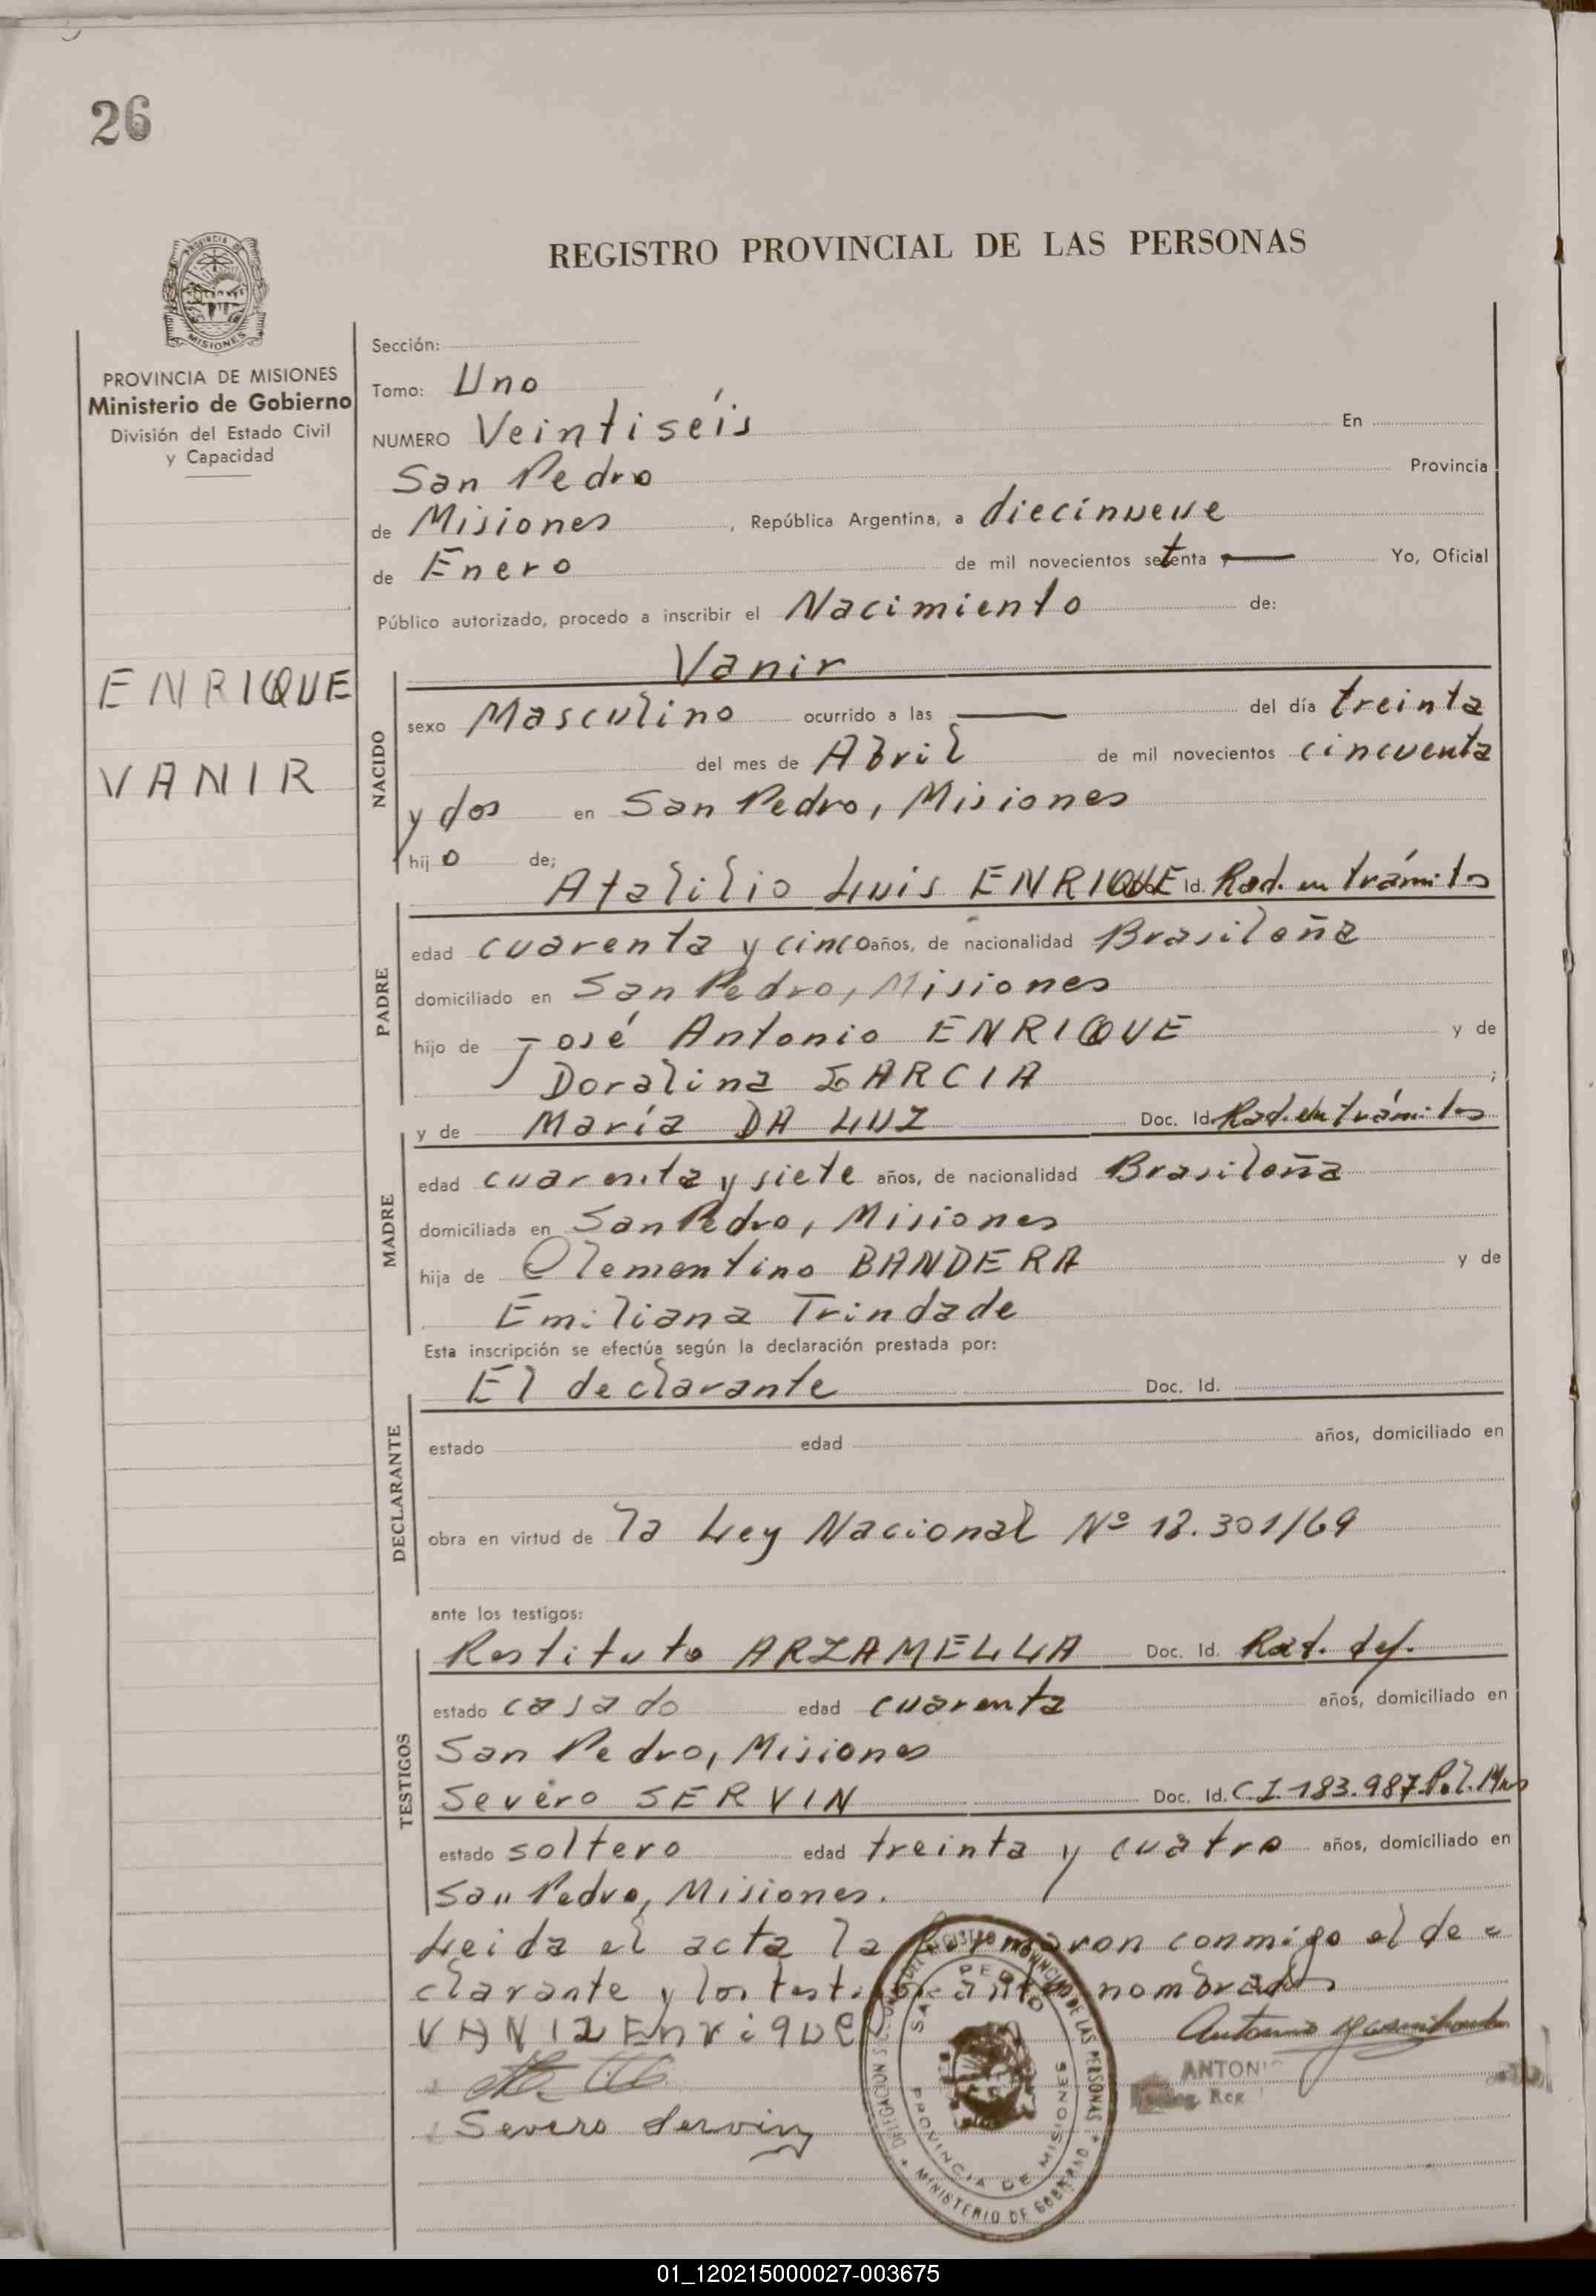 26
REGISTRO PROVINCIAL DE LAS PERSONAS
PROVINCIA DE MISIONES
Ministerio de Gobierno
División del Estado Civil
y Capacidad
ENRIQUE
VANIR
Sección:
Tomo: Uno
NUMERO Veintiséis En
San Pedro Provincia
de Misiones, República Argentina, a diecinueve
de Enero de mil novecientos setenta — Yo, Oficial
Público autorizado, procedo a inscribir el Nacimiento de:
Vanir
NACIDO
sexo Masculino ocurrido a las — del día treinta
del mes de Abril de mil novecientos cincuenta
y dos en San Pedro, Misiones
hijo de;
Atalilio Luis ENRIQUE Id. Rad. en trámites
PADRE
edad cuarenta y cinco años, de nacionalidad Brasileña
domiciliado en San Pedro, Misiones
hijo de José Antonio ENRIQUE y de
Doralina GARCIA ;
y de María DA LUZ Doc. Id. Rad. en trámites
MADRE
edad cuarenta y siete años, de nacionalidad Brasileña
domiciliada en San Pedro, Misiones
hija de Clementino BANDERA y de
Emiliana Trindade
Esta inscripción se efectúa según la declaración prestada por:
El declarante Doc. Id.
DECLARANTE
estado edad años, domiciliado en
obra en virtud de la Ley Nacional Nº 18.301/69
ante los testigos:
Restituto ARZAMELLA Doc. Id. Rat. def.
TESTIGOS
estado casado edad cuarenta años, domiciliado en
San Pedro, Misiones
Severo SERVIN Doc. Id. C.I. 183.987 Pol. Mnes
estado soltero edad treinta y cuatro años, domiciliado en
San Pedro, Misiones.
Leida el acta la firmaron conmigo el de=
clarante y los testigos antes nombrados
VANIR Enrique
Antonio
ANTONIO
Reg
Severo Servin
SAN PEDRO
PROVINCIA DE MISIONES
MINISTERIO DE GOBIERNO
01_120215000027-003675